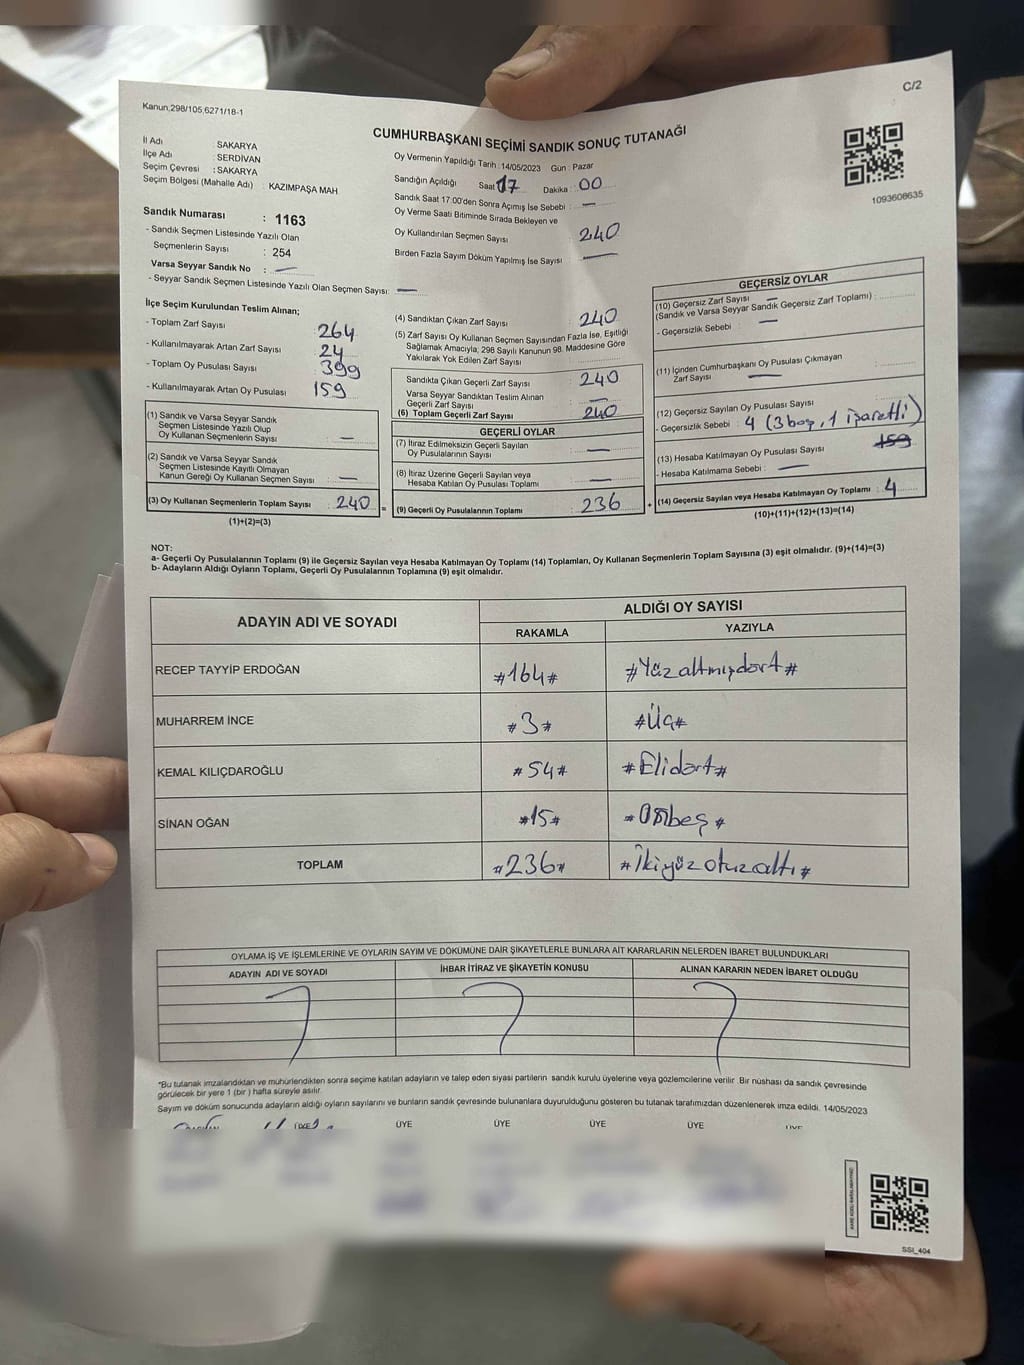 C/2
Kanun,298/105,6271/18-1
CUMHURBAŞKANI SEÇİMİ SANDIK SONUÇ TUTANAĞI
1093608635
İl Adı : SAKARYA
İlçe Adı : SERDİVAN
Seçim Çevresi : SAKARYA
Seçim Bölgesi (Mahalle Adı) : KAZIMPAŞA MAH
Sandık Numarası : 1163
- Sandık Seçmen Listesinde Yazılı Olan
Seçmenlerin Sayısı : 254
Varsa Seyyar Sandık No : —
- Seyyar Sandık Seçmen Listesinde Yazılı Olan Seçmen Sayısı: —
Oy Vermenin Yapıldığı Tarih : 14/05/2023 Gün : Pazar
Sandığın Açıldığı Saat : 17 Dakika : 00
Sandık Saat 17:00'den Sonra Açımış İse Sebebi : —
Oy Verme Saati Bitiminde Sırada Bekleyen ve
Oy Kullandırılan Seçmen Sayısı : 240
Birden Fazla Sayım Döküm Yapılmış İse Sayısı : —
İlçe Seçim Kurulundan Teslim Alınan;
- Toplam Zarf Sayısı : 264
- Kullanılmayarak Artan Zarf Sayısı : 24
- Toplam Oy Pusulası Sayısı : 399
- Kullanılmayarak Artan Oy Pusulası : 159
(1) Sandık ve Varsa Seyyar Sandık
Seçmen Listesinde Yazılı Olup
Oy Kullanan Seçmenlerin Sayısı : —
(2) Varsa Sandık ve Seyyar Sandık
Seçmen Listesinde Kayıtlı Olmayan
Kanun Gereği Oy Kullanan Seçmen Sayısı : —
(3) Oy Kullanan Seçmenlerin Toplam Sayısı : 240 =
(1)+(2)=(3)
(4) Sandıktan Çıkan Zarf Sayısı : 240
(5) Zarf Sayısı Oy Kullanan Seçmen Sayısından Fazla İse, Eşitliği
Sağlamak Amacıyla, 298 Sayılı Kanunun 98. Maddesine Göre
Yakılarak Yok Edilen Zarf Sayısı :
Sandıkta Çıkan Geçerli Zarf Sayısı : 240
Varsa Seyyar Sandıktan Teslim Alınan
Geçerli Zarf Sayısı : —
(6) Toplam Geçerli Zarf Sayısı : 240
GEÇERLİ OYLAR
(7) İtiraz Edilmeksizin Geçerli Sayılan
Oy Pusulalarının Sayısı : —
(8) İtiraz Üzerine Geçerli Sayılan veya
Hesaba Katılan Oy Pusulası Toplamı : —
(9) Geçerli Oy Pusulalarının Toplamı : 236 +
GEÇERSİZ OYLAR
(10) Geçersiz Zarf Sayısı —
(Sandık ve Varsa Seyyar Sandık Geçersiz Zarf Toplamı) :
- Geçersizlik Sebebi : —
(11) İçinden Cumhurbaşkanı Oy Pusulası Çıkmayan
Zarf Sayısı : —
(12) Geçersiz Sayılan Oy Pusulası Sayısı :
- Geçersizlik Sebebi : 4 (3 boş, 1 işaretli)
(13) Hesaba Katılmayan Oy Pusulası Sayısı : 159
- Hesaba Katılmama Sebebi : —
(14) Geçersiz Sayılan veya Hesaba Katılmayan Oy Toplamı : 4
(10)+(11)+(12)+(13)=(14)
NOT:
a- Geçerli Oy Pusulalarının Toplamı (9) ile Geçersiz Sayılan veya Hesaba Katılmayan Oy Toplamı (14) Toplamları, Oy Kullanan Seçmenlerin Toplam Sayısına (3) eşit olmalıdır. (9)+(14)=(3)
b- Adayların Aldığı Oyların Toplamı, Geçerli Oy Pusulalarının Toplamına (9) eşit olmalıdır.
ADAYIN ADI VE SOYADI ALDIĞI OY SAYISI
RAKAMLA YAZIYLA
RECEP TAYYİP ERDOĞAN #164# #Yüzaltmışdört#
MUHARREM İNCE #3# #Üç#
KEMAL KILIÇDAROĞLU #54# #Elidört#
SİNAN OĞAN #15# #Onbeş#
TOPLAM #236# #İkiyüzotuzaltı#
OYLAMA İŞ VE İŞLEMLERİNE VE OYLARIN SAYIM VE DÖKÜMÜNE DAİR ŞİKAYETLERLE BUNLARA AİT KARARLARIN NELERDEN İBARET BULUNDUKLARI
ADAYIN ADI VE SOYADI İHBAR İTİRAZ VE ŞİKAYETİN KONUSU ALINAN KARARIN NEDEN İBARET OLDUĞU
*Bu tutanak imzalandıktan ve mühürlendikten sonra seçime katılan adayların ve talep eden siyasi partilerin sandık kurulu üyelerine veya gözlemcilerine verilir. Bir nüshası da sandık çevresinde
görülecek bir yere 1 (bir) hafta süreyle asılır.
Sayım ve döküm sonucunda adayların aldığı oyların sayılarını ve bunların sandık çevresinde bulunanlara duyurulduğunu gösteren bu tutanak tarafımızdan düzenlenerek imza edildi. 14/05/2023
ÜYE ÜYE ÜYE ÜYE ÜYE
SSI_404